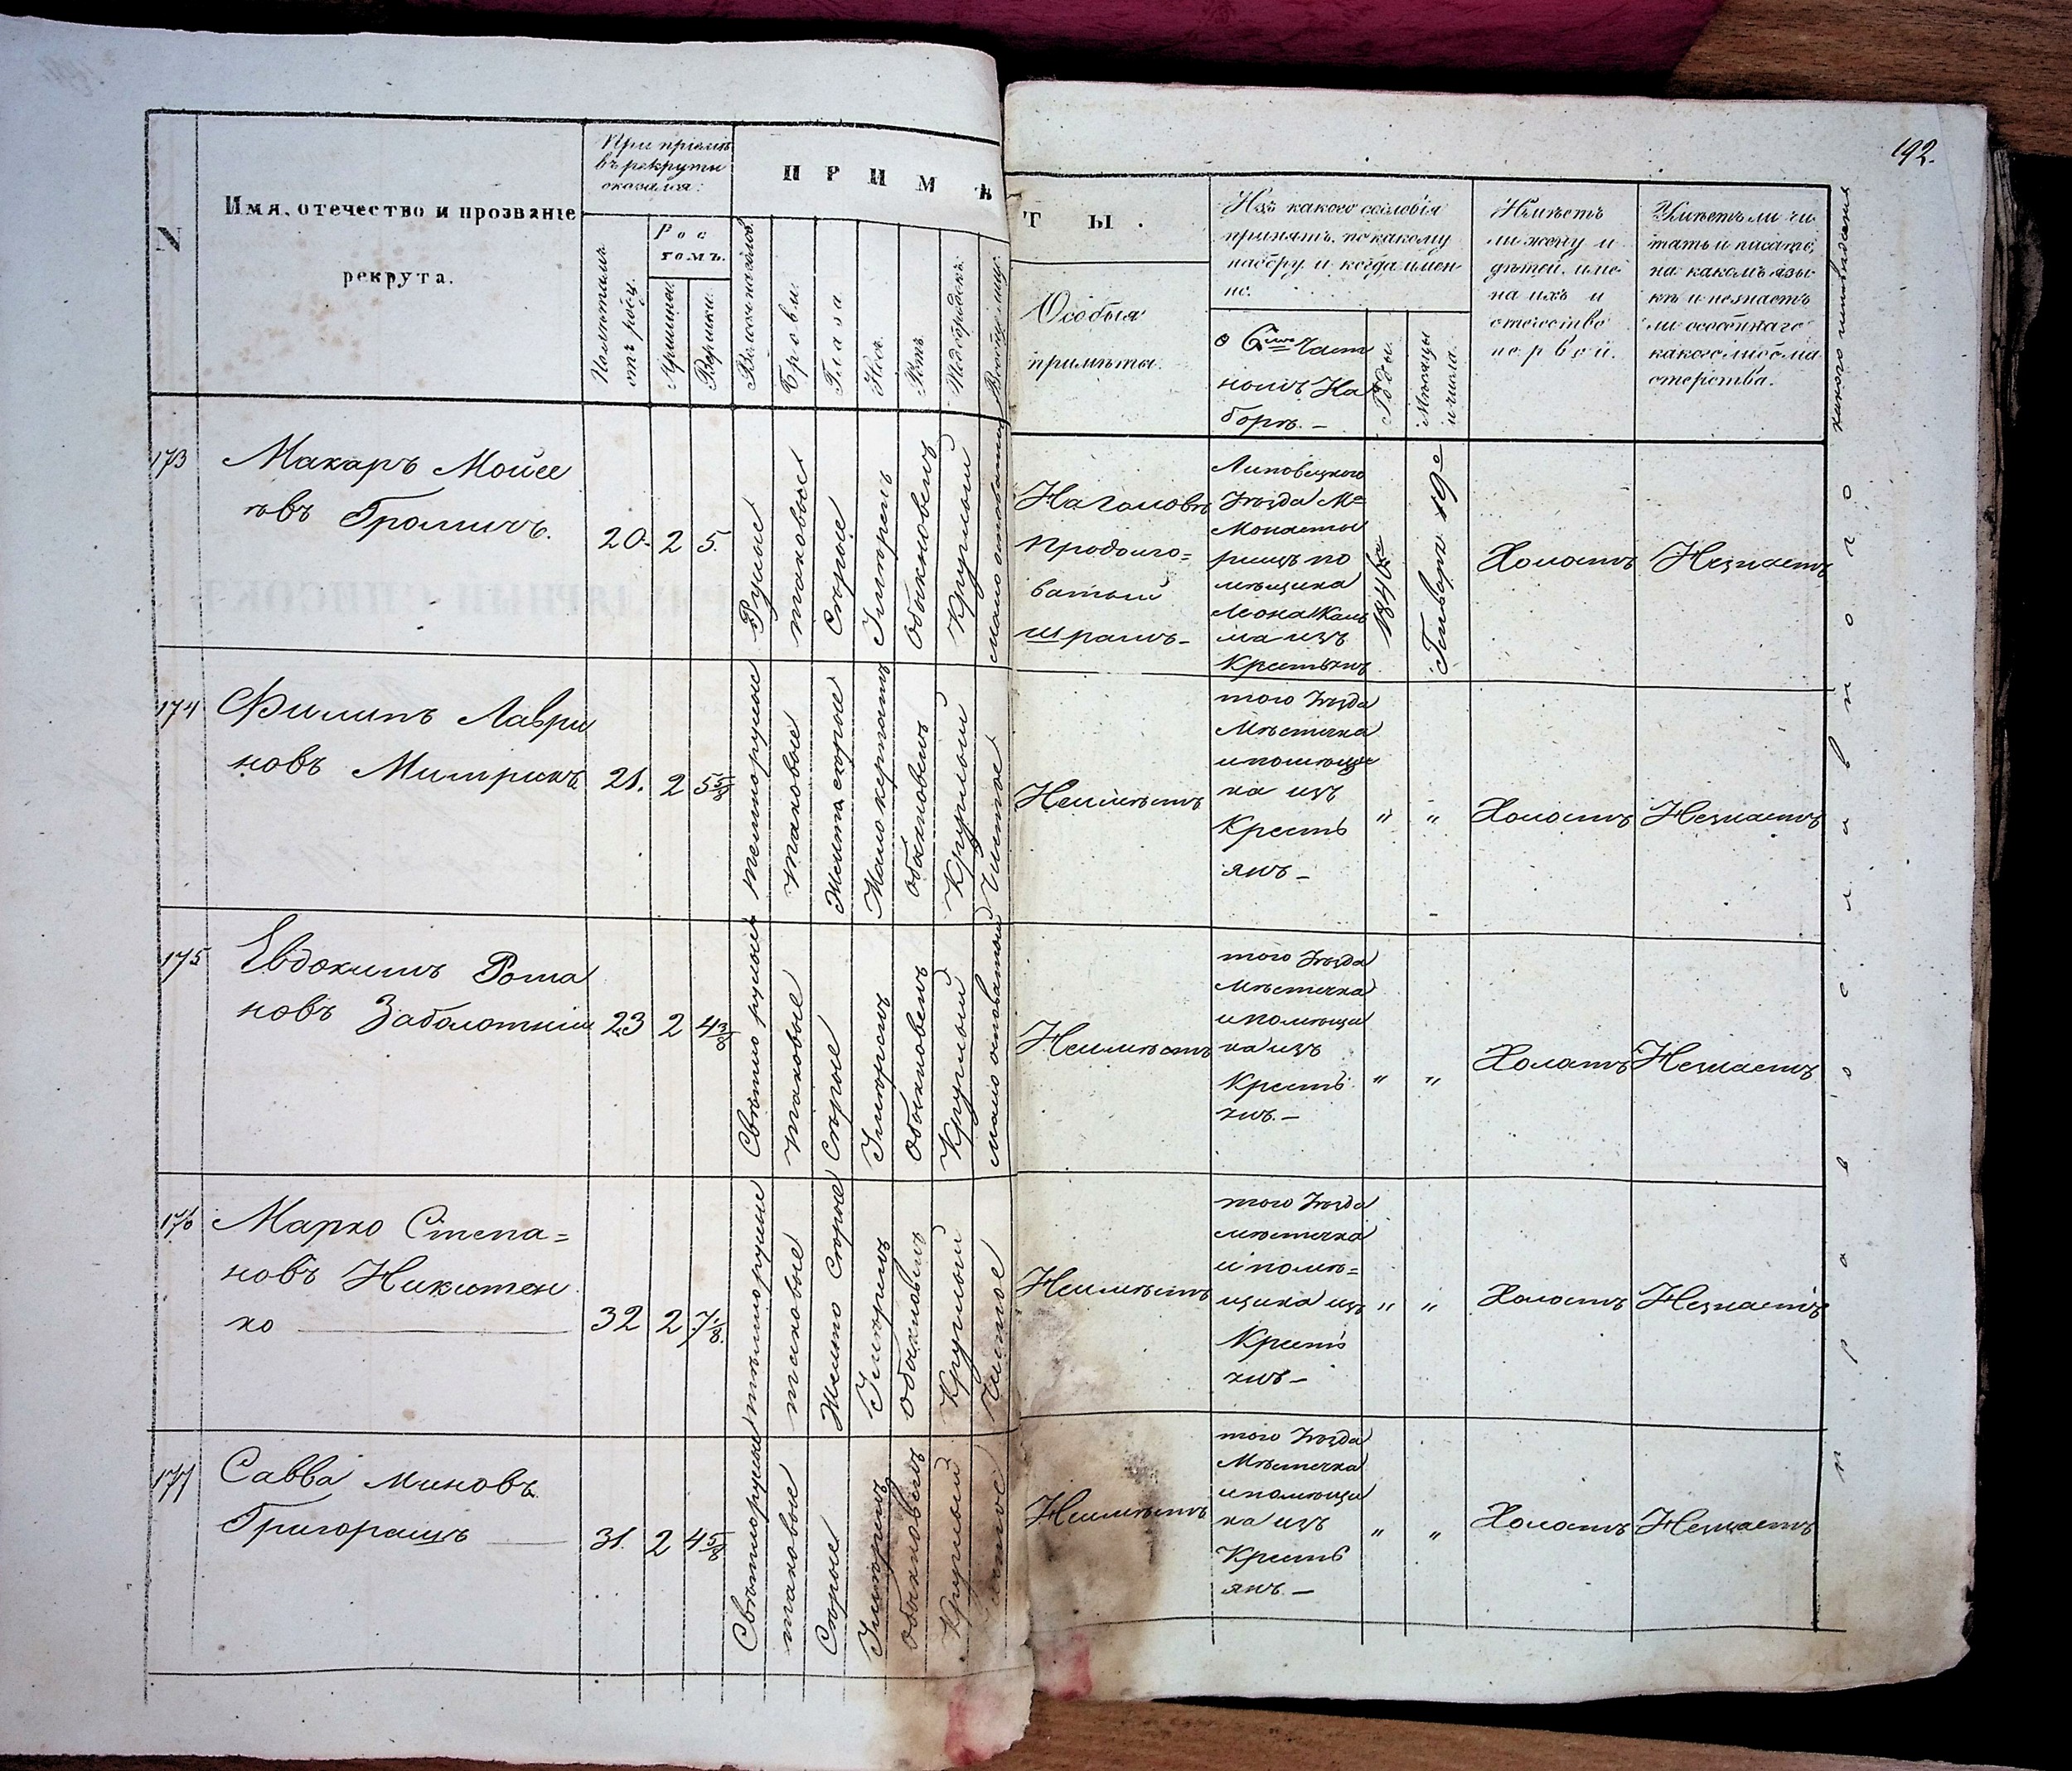 192.
N
Имя, отечество и прозваніе
рекрута.
При пріемѣ
въ рекруты
оказался:
Рос
томъ.
Аршины.
Вершки.
ПРИМѢТЫ.
Бровми.
Глаза.
Носъ.
Ротъ.
Подбородокъ.
Особыя
примѣты.
Изъ какого сословія
принятъ, по какому
набору и когда имен
но.
Част
номъ На
борѣ. –
Годы.
Мѣсяцы
и числа.
Имѣетъ
ли жену и
дѣтей, име
на ихъ и
отечество
первой.
Умѣетъ ли чи
тать и писать,
на какомъ язы
кѣ и незнаетъ
ли особеннаго
какого либо ма
стерства.
173
Макаръ Мойсе
овъ
20. 2 5.
Русые
таковые
Сѣрые
Умѣренъ
Обыкновенъ
Круглый
На головѣ
продолго=
ватый
шрамъ –
Липовецкого
Уѣзда Мѣ
Монасты
рищъ по
мѣщика
изъ
Крестьянъ
Генваря 19е
Холостъ
Незнаетъ
174
Филипъ Лаври
новъ
21. 2 5 5/8
Темнорусые
таковые
Желтосѣрые
обыкновенъ
Круглый
Чистое
Неимѣетъ
того Уѣзда
Мѣстечка
и помѣщи
ка изъ
Кресть
янъ –
" "
Холостъ
Незнаетъ
175
Евдокимъ Рома
новъ Заболотній
23 2 4 3/8
Свѣтло русые
таковые
Сѣрые
Умѣренъ
Обыкновенъ
Круглый
Неимѣетъ
того Уѣзда
Мѣстечка
и помѣщи
ка изъ
Кресть
янъ. –
" "
Холостъ
Незнаетъ
176
Марко Степа=
новъ Никитен
ко
32 2 7 1/8
таковые
Желто Сѣрые
Умѣренъ
обыкновенъ
Круглый
Чистое
Неимѣетъ
того Уѣзда
мѣстечка
и помѣ=
щика изъ
Крестъ
янъ –
" "
Холостъ
Незнаетъ
177
Савва Миновъ
Григоращъ
31. 2 4 5/8
Свѣтлорусые
таковые
Сѣрые
Умѣренъ
обыкновенъ
Круглый
Неимѣетъ
того Уѣзда
Мѣстечка
и помѣщи
ка изъ
Крестъ
янъ. –
" "
Холостъ
Незнаетъ
православного